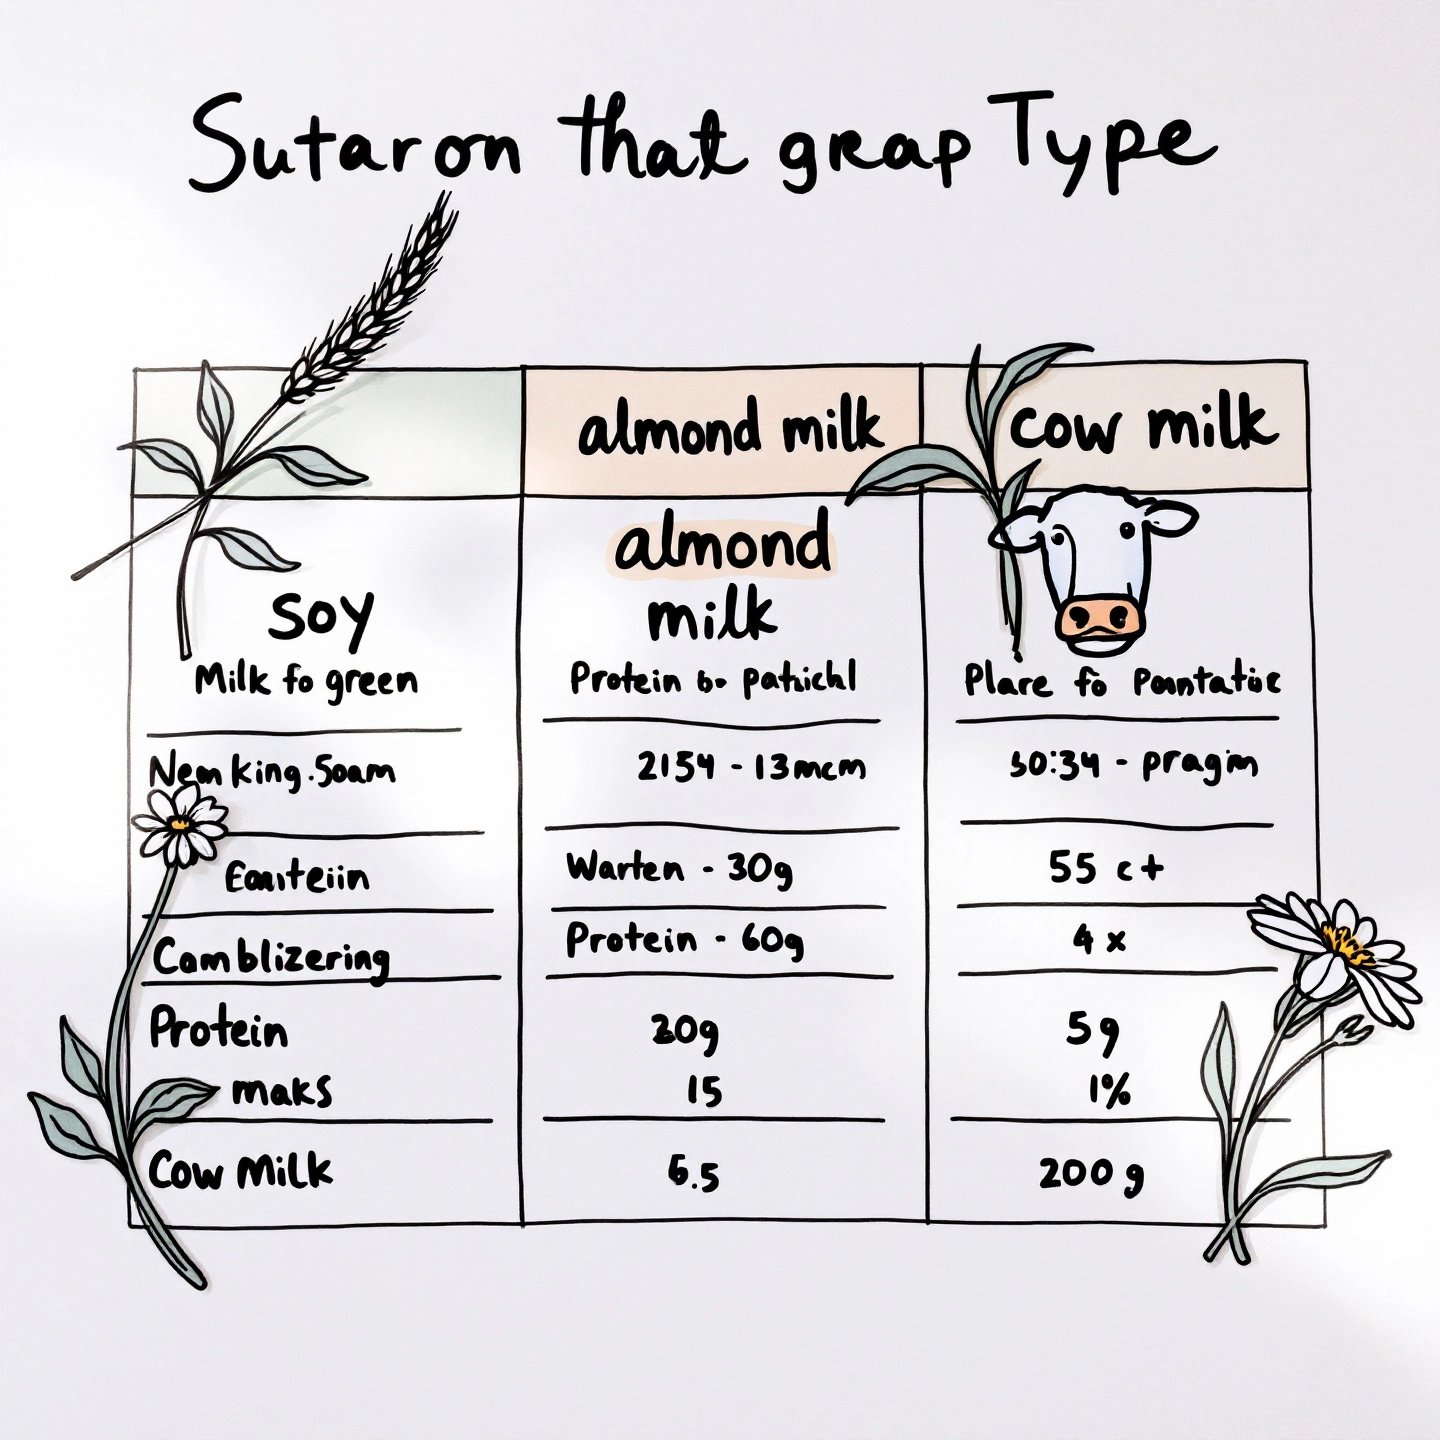 Sutaron that greap Type
almond milk
cow milk
soy
Milk fo green
almond
milk
Protein patrichl
Plare fo
Nem king.Soam
2154 - 13mcm
30:34 - pragim
Warten - 30g
55 c+
Camblizering
Protein - 60g
4 x
Protein
20g
5g
maks
15
1%
Cow Milk
6.5
200 g